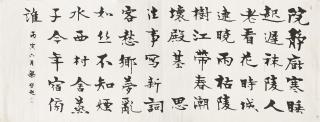 院靜廚寒睡
起遲秣陵人
老看花時城
連曉雨枯陵
樹江帶春潮
壞殿基 思
往事寫新詞
客愁鄉夢亂
如絲不知煙
水西村舍燕
子今年宿傍
誰
丙寅六月 梁啟超